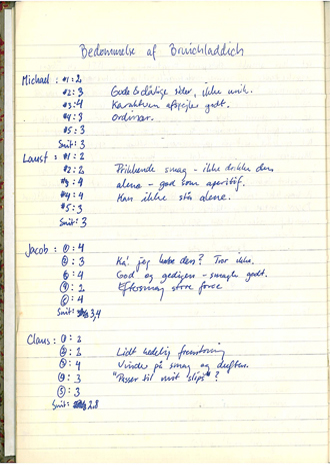 Bedømmelse af Bruichladdich
Michael: #1: 2
#2: 3 Gode & dårlige sider, ikke unik.
#3: 4 Karakteren afspejler godt.
#4: 3 ordinær.
#5: 3
Snit: 3
Laust: #1: 2
#2: 2 Prikkende smag - ikke drikke den
#3: 4 alene - god som aperitif.
#4: 4 Kan ikke stå alene.
#5: 3
Snit: 3
Jacob: ①: 4
②: 3 Ka' jeg købe den? Tror ikke.
③: 4 God og gedigen - smagte godt.
④: 2 Eftersmag store force
⑤: 4
Snit: 3,4
Claus: ①: 2
②: 2 Lidt kedelig fremtoning
③: 4 Vinder på smag og duften.
④: 3 "Passer til mit slips"?
⑤: 3
Snit: 2.8